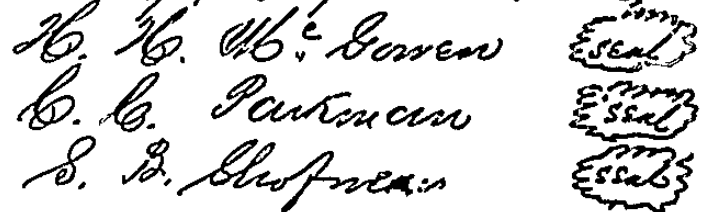 H. H. Mc Gowen seal
C. C. Parkman seal
S. B. seal